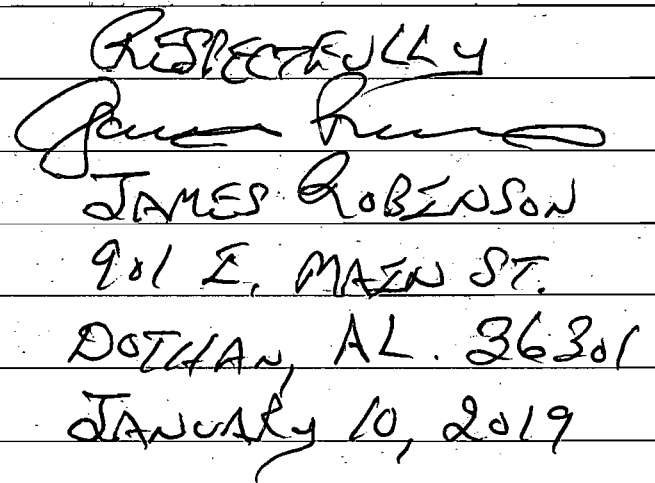 RESPECTFULLY
JAMES ROBINSON
901 E. MAIN ST.
DOTHAN, AL. 36301
JANUARY 10, 2019